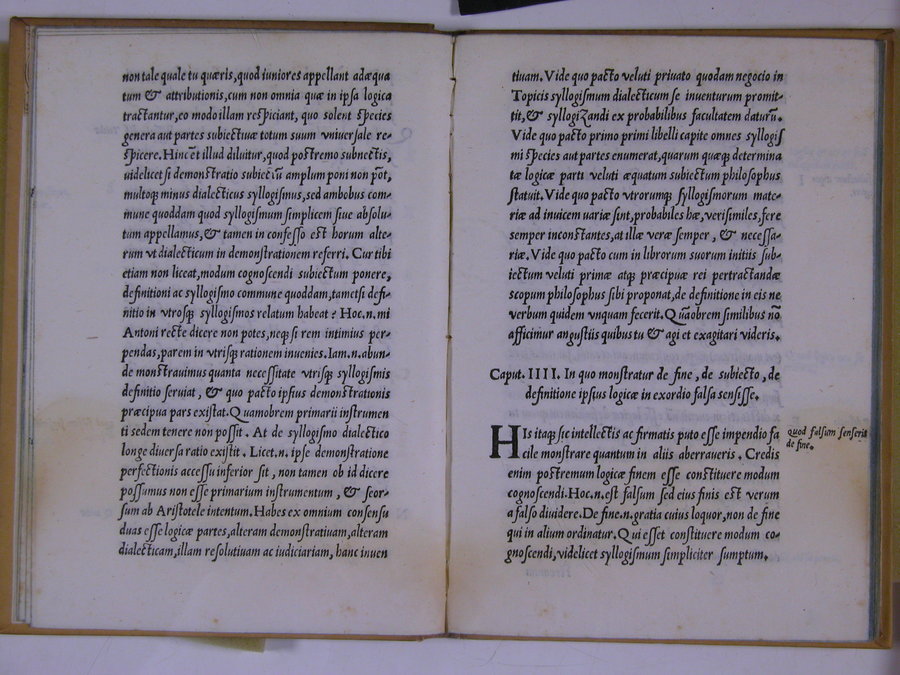 non tale quale tu quæris, quod iuniores appellant adæqua
tum & attributionis, cum non omnia quæ in ipsa logica
tractantur, eo modo illam respiciant, quo solent species
genera aut partes subiectiuæ totum suum vniuersale re-
spicere. Hinc et̄ illud diluitur, quod postremo subnectis,
uidelicet si demonstratio subiectū amplum poni non pōt,
multoq; minus dialecticus syllogismus, sed ambobus com-
mune quoddam quod syllogismum simplicem siue absolu-
tum appellamus, & tamen in confesso est horum alte-
rum vt dialecticum in demonstrationem referri. Cur tibi
etiam non liceat, modum cognoscendi subiectum ponere,
definitioni ac syllogismo commune quoddam, tametsi defi-
nitio in vtrosq; syllogismos relatum habeat? Hoc.n.mi
Antoni recte dicere non potes, neq; si rem intimius per-
pendas, parem in vtrisq; rationem inuenies. Iam.n.abun-
de monstrauimus quanta necessitate vtrisq; syllogismis
definitio seruiat, & quo pacto ipsius demonstrationis
præcipua pars existat. Quamobrem primarii instrumen
ti sedem tenere non possit. At de syllogismo dialectico
longe diuersa ratio existit. Licet.n. ipse demonstratione
perfectionis accessu inferior sit, non tamen ob id dicere
possumus non esse primarium instrumentum, & seor-
sum ab Aristotele intentum. Habes ex omnium consensu
duas esse logicæ partes, alteram demonstratiuam, alteram
dialecticam, illam resolutiuam ac iudiciariam, hanc inuen
tiuam. Vide quo pacto veluti priuato quodam negocio in
Topicis syllogismum dialecticum se inuenturum promit-
tit, & syllogizandi ex probabilibus facultatem daturū.
Vide quo pacto primo primi libelli capite omnes syllogis
mi species aut partes enumerat, quarum quæq; determina
tæ logicæ parti veluti æquatum subiectum philosophus
statuit. Vide quo pacto vtrorumq; syllogismorum mate-
riæ ad inuicem uariæ sint, probabiles hæ, verisimiles, fere
semper inconstantes, at illæ veræ semper, & necessa-
riæ. Vide quo pacto cum in librorum suorum initiis sub-
iectum veluti primæ atq; præcipuæ rei pertractandæ
scopum philosophus sibi proponat, de definitione in eis ne
verbum quidem vnquam fecerit. Quāobrem similibus nō
afficimur angustiis quibus tu & agi et exagitari videris.
Caput. IIII. In quo monstratur de fine, de subiecto, de
definitione ipsius logicæ in exordio falsa sensisse.
HIs itaq; sic intellectis ac firmatis puto esse impendio fa
cile monstrare quantum in aliis aberraueris. Credis
enim postremum logicæ finem esse constituere modum
cognoscendi. Hoc.n.est falsum sed eius finis est verum
a falso diuidere. De fine.n.gratia cuius loquor, non de fine
qui in alium ordinatur. Qui esset constituere modum co-
gnoscendi, videlicet syllogismum simpliciter sumptum.
quod falsum senserit
de fine.